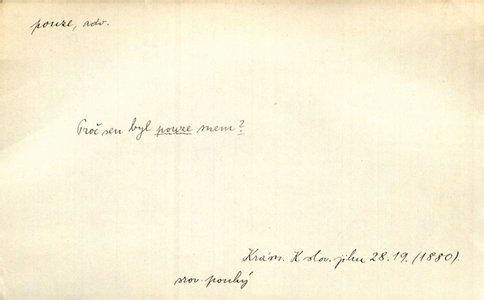 pouze, adv.
Proč sen byl pouze snem?
Krás. K slov. jihu 28.19. (1880).
srov. pouhý